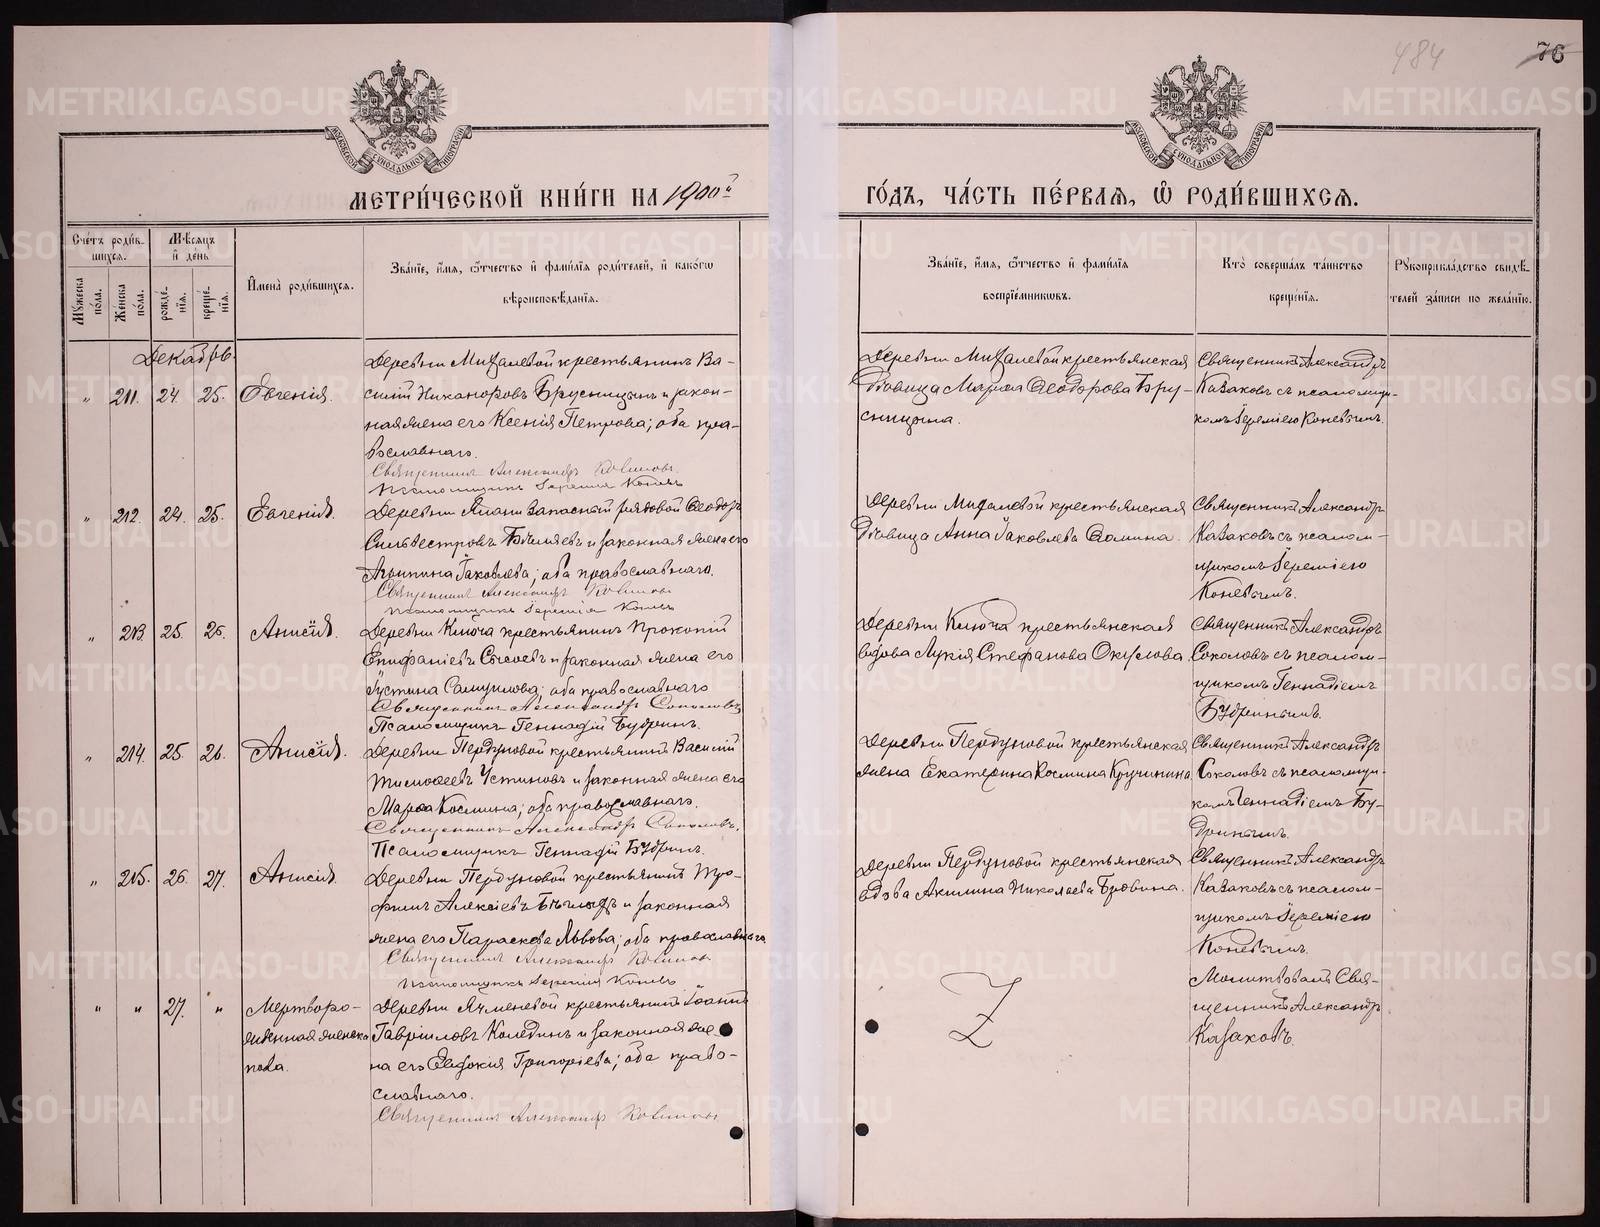 484
76
МЕТРИ́ЧЕСКОЙ КНИ́ГИ НА 1900й
ГО́ДЪ, ЧА́СТЬ ПЕ́РВАЯ, Ѡ РОДИ́ВШИХСЯ.
Сче́тъ роди́вшихся.
Мꙋ́жеска пола.
Же́нска пола.
Мѣ́сяцъ и́ де́нь
рожде́нїя.
креще́нїя.
Имена̀ роди́вшихся.
Зва́нїе, и́мя, ѻ́тчество и́ фами́лїя роди́телей, и́ како́гѡ
вѣроисповѣ́данїя.
Зва́нїе, и́мя, ѻ́тчество и́ фами́лїя
воспрїе́мниковъ.
Кто̀ соверша́лъ та́инство
креще́нїя.
Рꙋкоприкла́дство свидѣ́-
телей за́писи по жела́нїю.
Декабрь.
" 211. 24. 25. Евгенія.
Деревни Мизалевой крестьянинъ Ва-
силій Никаноровъ Брусницынъ и закон-
ная жена его Ксенія Петрова; оба пра-
вославнаго.
Священникъ Александръ
Псаломщикъ Іеремія
Деревни Мизалевой крестьянская
дѣвица Марѳа Ѳеодорова Бру-
сницына.
Священникъ Александръ
Казаковъ съ псаломщи-
комъ Іереміею Коневымъ.
" 212. 24. 25. Евгенія.
Деревни запасный рядовой Ѳеодоръ
Сильвестровъ и законная жена его
Агрипина Іаковлева; оба православнаго.
Священникъ Александръ
Псаломщикъ Іеремія
Деревни Мизалевой крестьянская
дѣвица Анна Іаковлева Ѳомина.
Священникъ Александръ
Казаковъ съ псалом-
щикомъ Іереміею
Коневымъ.
" 213. 25. 26. Анисія.
Деревни Ключа крестьянинъ Прокопій
Епифаніевъ Сысоевъ и законная жена его
Іустина Самуилова; оба православнаго
Священникъ Александръ Соколовъ
Псаломщикъ Геннадій Будринъ.
Деревни Ключа крестьянская
вдова Лукія Стефанова Окулова.
Священникъ Александръ
Соколовъ съ псалом-
щикомъ Геннадіемъ
Будринымъ.
" 214. 25. 26. Анисія.
Деревни Пердуновой крестьянинъ Василій
Тимофеевъ Устиновъ и законная жена его
Марѳа Космина; оба православнаго.
Священникъ Александръ Соколовъ.
Псаломщикъ Геннадій Будринъ.
Деревни Пердуновой крестьянская
жена Екатерина Космина Кручинина.
Священникъ Александръ
Соколовъ съ псаломщи-
комъ Геннадіемъ Бу-
дринымъ.
" 215. 26. 27. Анисія.
Деревни Пердуновой крестьянинъ Тро-
фимъ Алексіевъ и законная
жена его Параскева Львова; оба православнаго.
Священникъ Александръ
Псаломщикъ Іеремія
Деревни Пердуновой крестьянская
вдова Акилина Николаева Бровина.
Священникъ Александръ
Казаковъ съ псалом-
щикомъ Іереміею
Коневымъ.
" " 27. "
Мертворо-
жденная женска
пола.
Деревни Ячменевой крестьянинъ Іоаннъ
Гавріиловъ Колединъ и законная же-
на его Евдокія Григоріева; оба право-
славнаго.
Священникъ Александръ
Z
Молитвовалъ Свя-
щенникъ Александръ
Казаковъ.
METRIKI.GASO-URAL.RU
МОСКОВСКОЙ СѴНОДАЛЬНОЙ ТИПОГРАФІИ